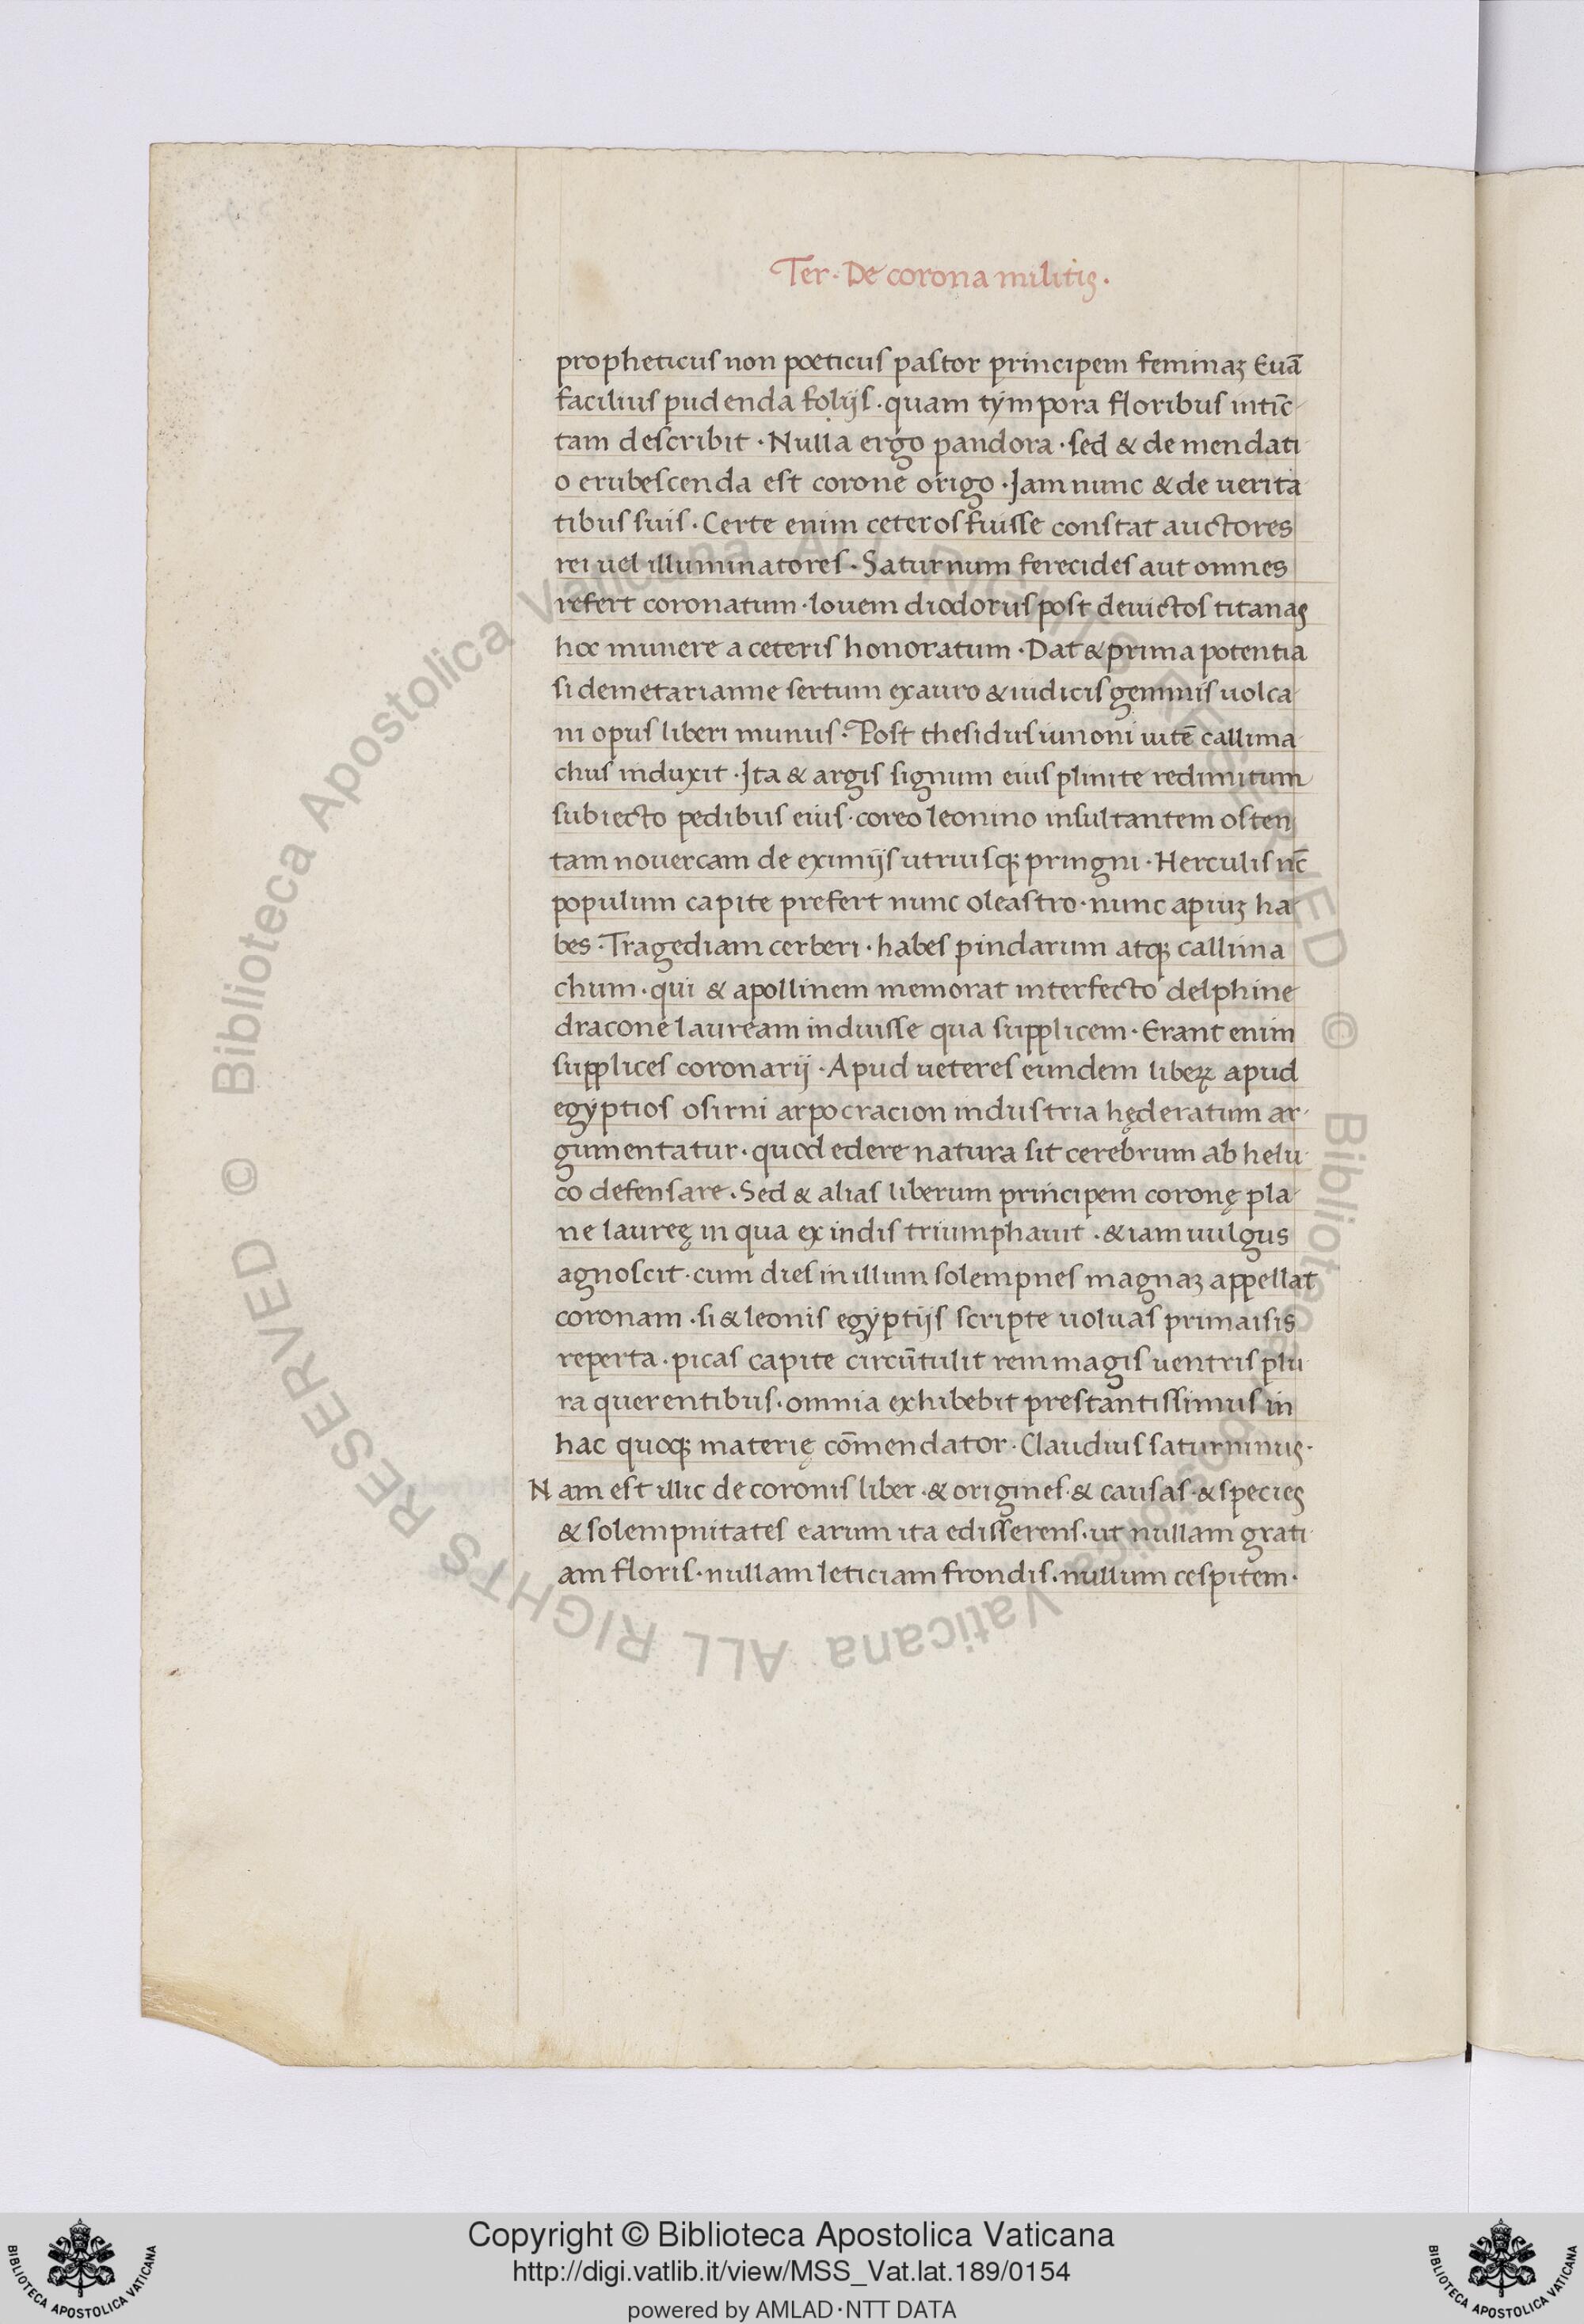 Ter· De corona militis·
propheticus non poeticus pastor principem feminaꝫ Euā
facilius pudenda folijs·quam tympora floribus intīc
tam describit·Nulla ergo pandora·sed & de mendati
o erubescenda est corone origo·Jam nunc & de uerita
tibus suis·Certe enim ceteros fuisse constat auctores
rei uel illuminatores·Saturnum ferecides aut omnes
refert coronatum·Iouem diodorus post deuictos titanas
hoc munere a ceteris honoratum·Dat & prima potentia
si demetarianne sertum ex auro & iudicis gemmis uolca
ni opus liberi munus·Post thesidus iunoni uitē callima
chus induxit·Ita & argis signum eius plinite redimitum
subiecto pedibus eius·coreo leonino insultantem osten
tam nouercam de eximijs utriusqꝫ pringni·Herculis nc̄
populum capite prefert nunc oleastro·nunc apiuꝫ ha
bes·Tragediam cerberi·habes pindarum atqꝫ callima
chum·qui & apollinem memorat interfecto delphine
dracone lauream induisse qua supplicem·Erant enim
supplices coronarij·Apud ueteres eundem libeꝝ apud
egyptios osirni arpocracion industria hęderatum ar
gumentatur·quod edere natura sit cerebrum ab helu
co defensare·Sed & alias liberum principem coronę pla
ne laureę in qua ex indis triumphauit·& iam uulgus
agnoscit·cum dies in illum solempnes magnaꝫ appellat
coronam·si & leonis egyptijs scripte uoluas prima isis
reperta·picas capite circūtulit rem magis uentris plu
ra querentibus·omnia exhibebit prestantissimus in
hac quoqꝫ materię cōmendator·Claudius saturninus·
Nam est illic de coronis liber·& origines·& causas·& species
& solempnitates earum ita edisserens·ut nullam grati
am floris·nullam leticiam frondis·nullum cespitem·
© Biblioteca Apostolica Vaticana ALL RIGHTS RESERVED © Biblioteca Apostolica Vaticana ALL RIGHTS RESERVED
Copyright © Biblioteca Apostolica Vaticana
http://digi.vatlib.it/view/MSS_Vat.lat.189/0154
powered by AMLAD·NTT DATA
BIBLIOTECA APOSTOLICA VATICANA
BIBLIOTECA APOSTOLICA VATICANA